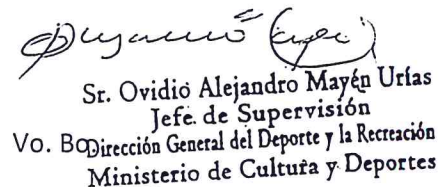 Sr. Ovidio Alejandro Mayén Urías
Jefe de Supervisión
Vo. Bo. Dirección General del Deporte y la Recreación
Ministerio de Cultura y Deportes